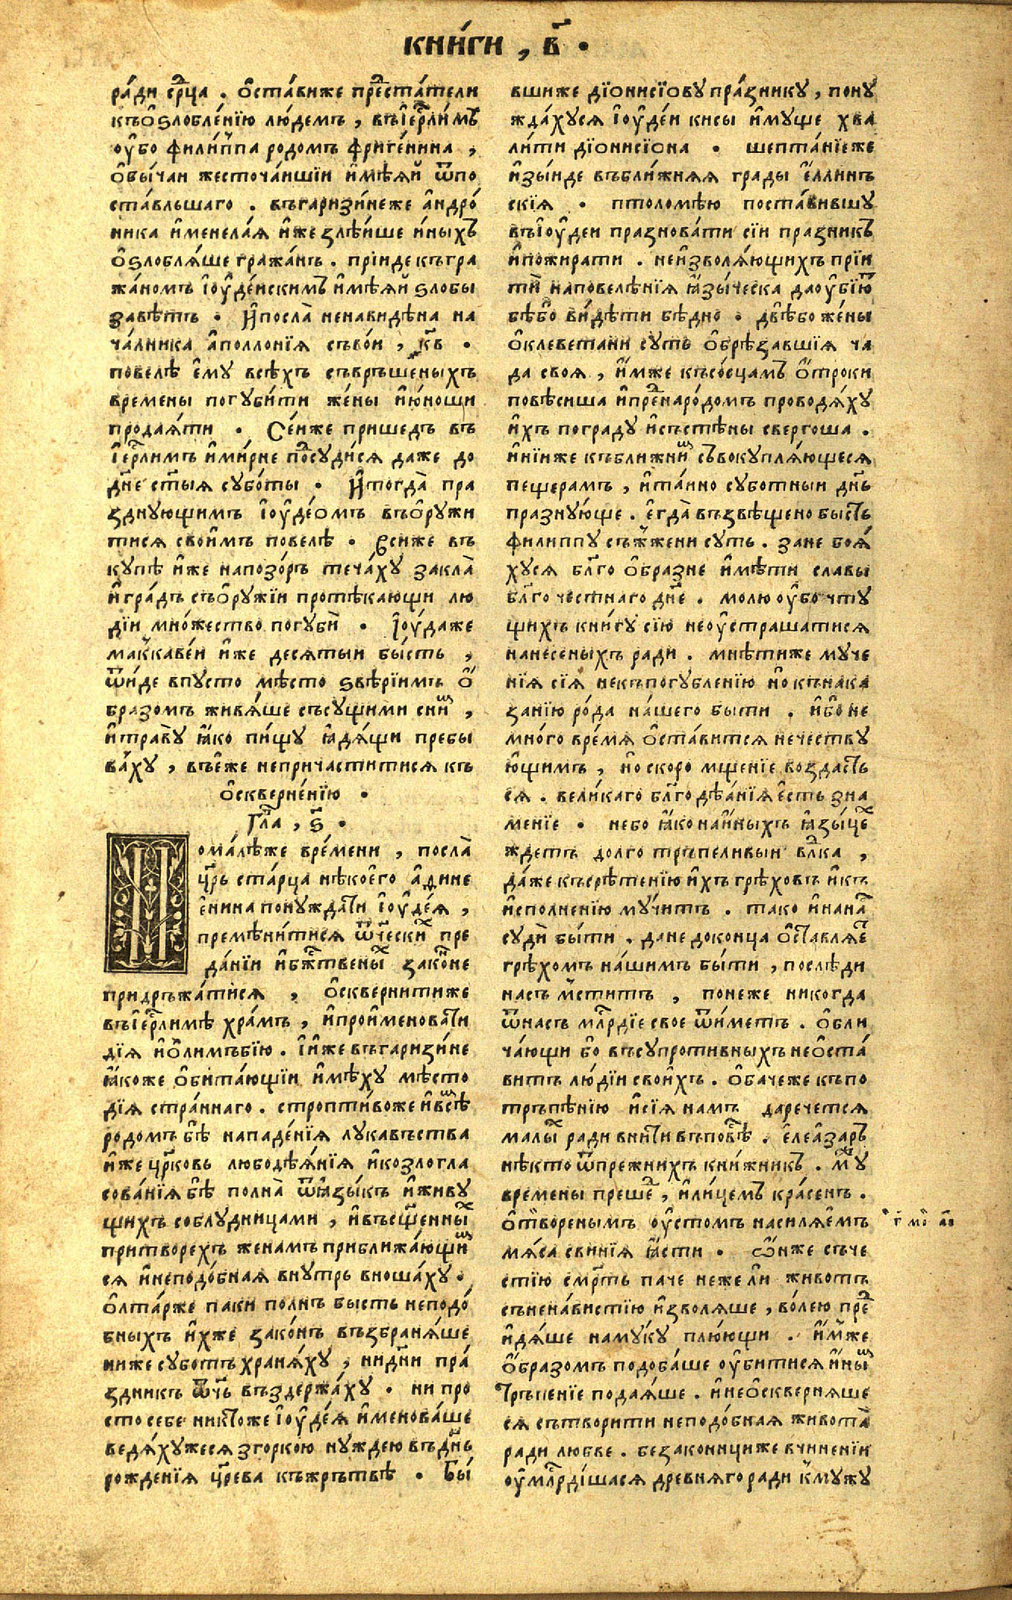 КНИ́ГИ , В҃ .
ра́ди срⷣца . ѻ҆ста́виже прⷣеста́тели
къѻ҆ѕлобле́нїю лю́демъ , въїе҆рⷭ҇ли́мѣ
оу҆бо филиⷫ҇па родомъ фриге́нина ,
ѻ҆бы́чаи жесточа́ишїи и҆мѣ́яй ѿпо
ста́вльшаго . въгаризи́неже а҆ндро́
ника и҆менела́я и҆же злѣ́йше и҆ныхъ
ѻ҆ѕлобля́ше гража́нъ . прїиде къгра
жа́номъ і҆оу҆де́искимъ и҆мѣ́яй ѕлобы
завѣ́тъ . И҆посла̀ ненави́дѣна на
ча́лника а҆поллонїя съво́и , к҃в .
повелѣ є҆му̀ всѣ́хъ съвръше́ныхъ
времены погуби́ти же́ны и҆ю́ноши
продая́ти . Се́иже прише́дъ въ
і҆ерⷭ҇лимъ и҆ми́рне посуди́ся даже до
дн҃е ст҃ыя субо́ты . И҆тогда̀ пра
зднующимъ і҆оу҆де́ѡмъ въѻ҆ружи
тися свои́мъ повелѣ . Єсиже въ
купѣ и҆же напозо́ръ теча́ху закла̀
и҆гра́дъ съѻ҆ру́жїи протѣкающи лю
дїи мно́жество погуби̏ . І҆оу́даже
маⷦ҇каве́и и҆же деся́тыи бы́сть ,
ѿи́де впусто мѣ́сто ѕвѣ́рїимъ ѻ҆
бразомъ живя́ше съсущими сниⷨ ,
и҆траву̀ ꙗ҆ко пи́щу ꙗ҆дя́щи пребы
ва́ху , въє҆же непричаститися къ
ѻ҆скверне́нїю .
Гл҃а , ѕ҃ .
Пома́лѣже вре́мени , посла̀
цр҃ь ста́рца нѣкоего а҆дине
є҆нина понужда́ти і҆оу҆де́я ,
премѣни́тися ѿⷱ҇ескиⷯ пре
да́нїи и҆бжⷭ҇твеныⷯ зако́не
придръжа́тися , ѻ҆сквернитиже
въїе҆рⷭ҇лимѣ хра́мъ , и҆прои҆менова́ти
дїя и҆ѻ҆ли́мъбїю . і҆и҆же въгаризи́не
ꙗ҆коже ѻ҆бита́ющїи и҆мѣ́ху мѣсто
дїя стра́ннаго . стропти́воже и҆всѣⷨ
родомъ бѣ̀ нападе́нїя лука́въства
и҆же цр҃ковь любодѣя́нїя и҆козлогла
сова́нїя бѣ̀ полна̀ ѿꙗ҆зы́къ и҆живу
щихъ соблудницами , и҆въсщ҃енныⷯ
притворехъ женамъ приближа́ющиⷨ
ся и҆неподо́бная внутрь вноша́ху .
ѻ҆лта́рже паки полнъ бысть неподо́
бныхъ и҆хже зако́нъ възбраня́ше
ниже субо́тъ храня́ху , нидн҃и пра́
здникъ ѿч҃ь въздержа́ху . ни про
сто себе никтоже і҆оу҆де́я и҆менова́ше
ведя́хужеся згоркою ну́ждею въдн҃ь
рожде́нїя цр҃ева къжрътвѣ . Бы́
вшиже дїониси́ову пра́знику , пону
жда́хуся і҆оу҆де́и кисы и҆му́ще хва
ли́ти дїониси́она . шепта́нїеже
и҆зы́иде въбли́жняя грады є҆ллинъ
скїя . птоломе́ю поста́вившу
въїоу҆деи празнова́ти сїи пра́зникъ
и҆пожирати . неи҆зволя́ющихъ прїи
ти̏ наповелѣ́нїя ꙗ҆зы́ческа даоу҆бїюⷮ
бѣ̀бо ви́дѣти бѣдно . двѣ́бо же́ны
ѻ҆клеве́тани суть ѻ҆брѣ́завшїя ча
да своя , и҆мже късо́сцамъ ѻ҆троки
повѣсиша и҆преⷣнаро́домъ проводя́ху
и҆хъ пограду и҆сстѣ́ны свергоша .
и҆нїиже къближниⷨ съвокупля́ющеся
пещерамъ , и҆та́ино субо́тныи дн҃ь
празную́ще . є҆гда̀ възвѣще́но бы́сть
филиппу съжжени суть . зане боя́
хуся бл҃го ѻ҆бразне и҆мѣ́ти славы
бл҃го че́стнаго дн҃е . молю оу҆бо чту
щихъ кни́гу сїю неоу҆страша́тися
нанесеныхъ ради . мнѣ́тиже муче
нїя сїя некъпогубле́нїю но́ кънака
занїю ро́да на́шего бы́ти . и҆бо не
мно́го вре́мя ѻ҆ста́вится нечеству
ю҆щимъ , но скоро мщенїе возда́сть
ся . вели́каго бл҃го дѣя́нїя є҆сть зна
менїе . небо ꙗ҆ко наи҆ныхъ ꙗ҆зы́цеⷯ
ждетъ долго тръпели́выи вⷧ҇ка ,
да́же късрѣ́тенїю и҆хъ грѣхо́въ и҆къ
и҆сполненїю му́читъ . тако и҆нанаⷭ
судѝ бы́ти . дане доконца ѻ҆ставляеⷮ
грѣхомъ на́шимъ бы́ти , послѣди
насъ мⷭтитъ , понеже никогда
ѿнасъ млⷭ҇рдїе свое ѿи́метъ . ѻ҆бли
ча́ющи бо̀ въсупроти́вныхъ неѻ҆ста́
витъ лю́дїи свои́хъ . ѻ҆баче́же къпо
тръпѣ́нїю и҆сїя намъ даречется
малыⷯ ради вни́ти въповⷭ҇ѣ . є҆леа҆зарь
нѣкто ѿпрежнихъ кни́жникъ . мⷤу
времены прешеⷣ , и҆ли́цемъ кра́сенъ .
ѻ҆творенымъ оу҆сто́мъ насиля́емъ
мяса свинїя ꙗ҆сти . Ѡ҆ниже съче
стїю смрⷮь паче неже ли̏ животъ
съненавистїю и҆зволя́ше , во́лею преⷣ
и҆дя́ше наму́ку плю́ющи . и҆мже
ѻ҆бразомъ подоба́ше оу҆би́тися и҆ныⷨ
Тръпе́нїе подая́ше . и҆неѻ҆скверня́ше
ся сътворити неподо́бная живота̀
ради любве . безако́нницииже вчине́нїи
оу҆млⷭ҇рдїшася дре́вняго ради к҆мужу